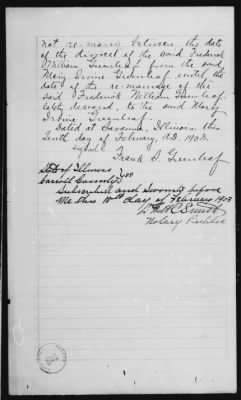 not re-marry between the date
of the divorce of the said Frederick
William Greenleaf from the said
Mary Irvine Greenleaf until the
date of the re-marriage of the
said Frederick William Greenleaf
lately deceased, to the said Mary
Irvine Greenleaf.
Dated at Savanna, Illinois this
Tenth day of February, A.D. 1903.
Signed Frank S. Greenleaf
State of Illinois
Carroll County } ss
Subscribed and Sworn to before
me this 10th day of February 1903
Notary Public